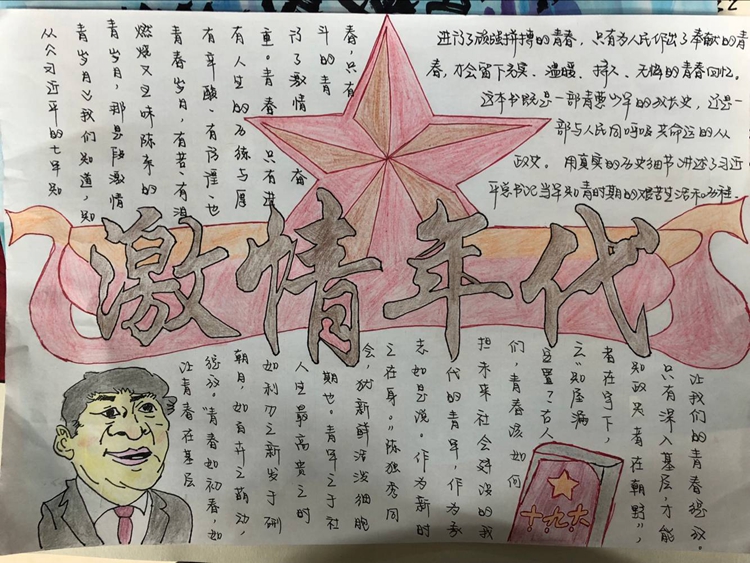 从《习近平的七年知
青岁月》我们知道,知
青岁月,那是段激情
燃烧又五味陈杂的
青春岁月,有苦有泪
有辛酸、有 也
有人生的历练与厚
重。青春只有进
行了激情奋
斗的青
春,只有
进行了顽强拼搏的青春,只有为人民作出了奉献的青
春,才会留下充实、温暖、持久、无悔的青春回忆。
这本书既是一部青 少年的成长史,还是一
部与人民同呼吸共命运的从
政史。用真实的历史细节讲述了习近
平总书记当年知青时期的艰苦生活和历程.
激情年代
让青春在基层
绽放。"青春如初春,如
朝日,如百卉之萌动,
如利刃之新发于硎
人生最高贵之时
期也。青年之于社
会,犹新鲜活泼细胞
之在身。"陈独秀同
志如是说。作为新时
代的青年,作为承
担未来社会建设的我
们,青春该如何
安置?古人
云"知屋漏
者在宇下,
知政失者在朝野",
只有深入基层,才能
让我们的青春绽放。
十·九·大